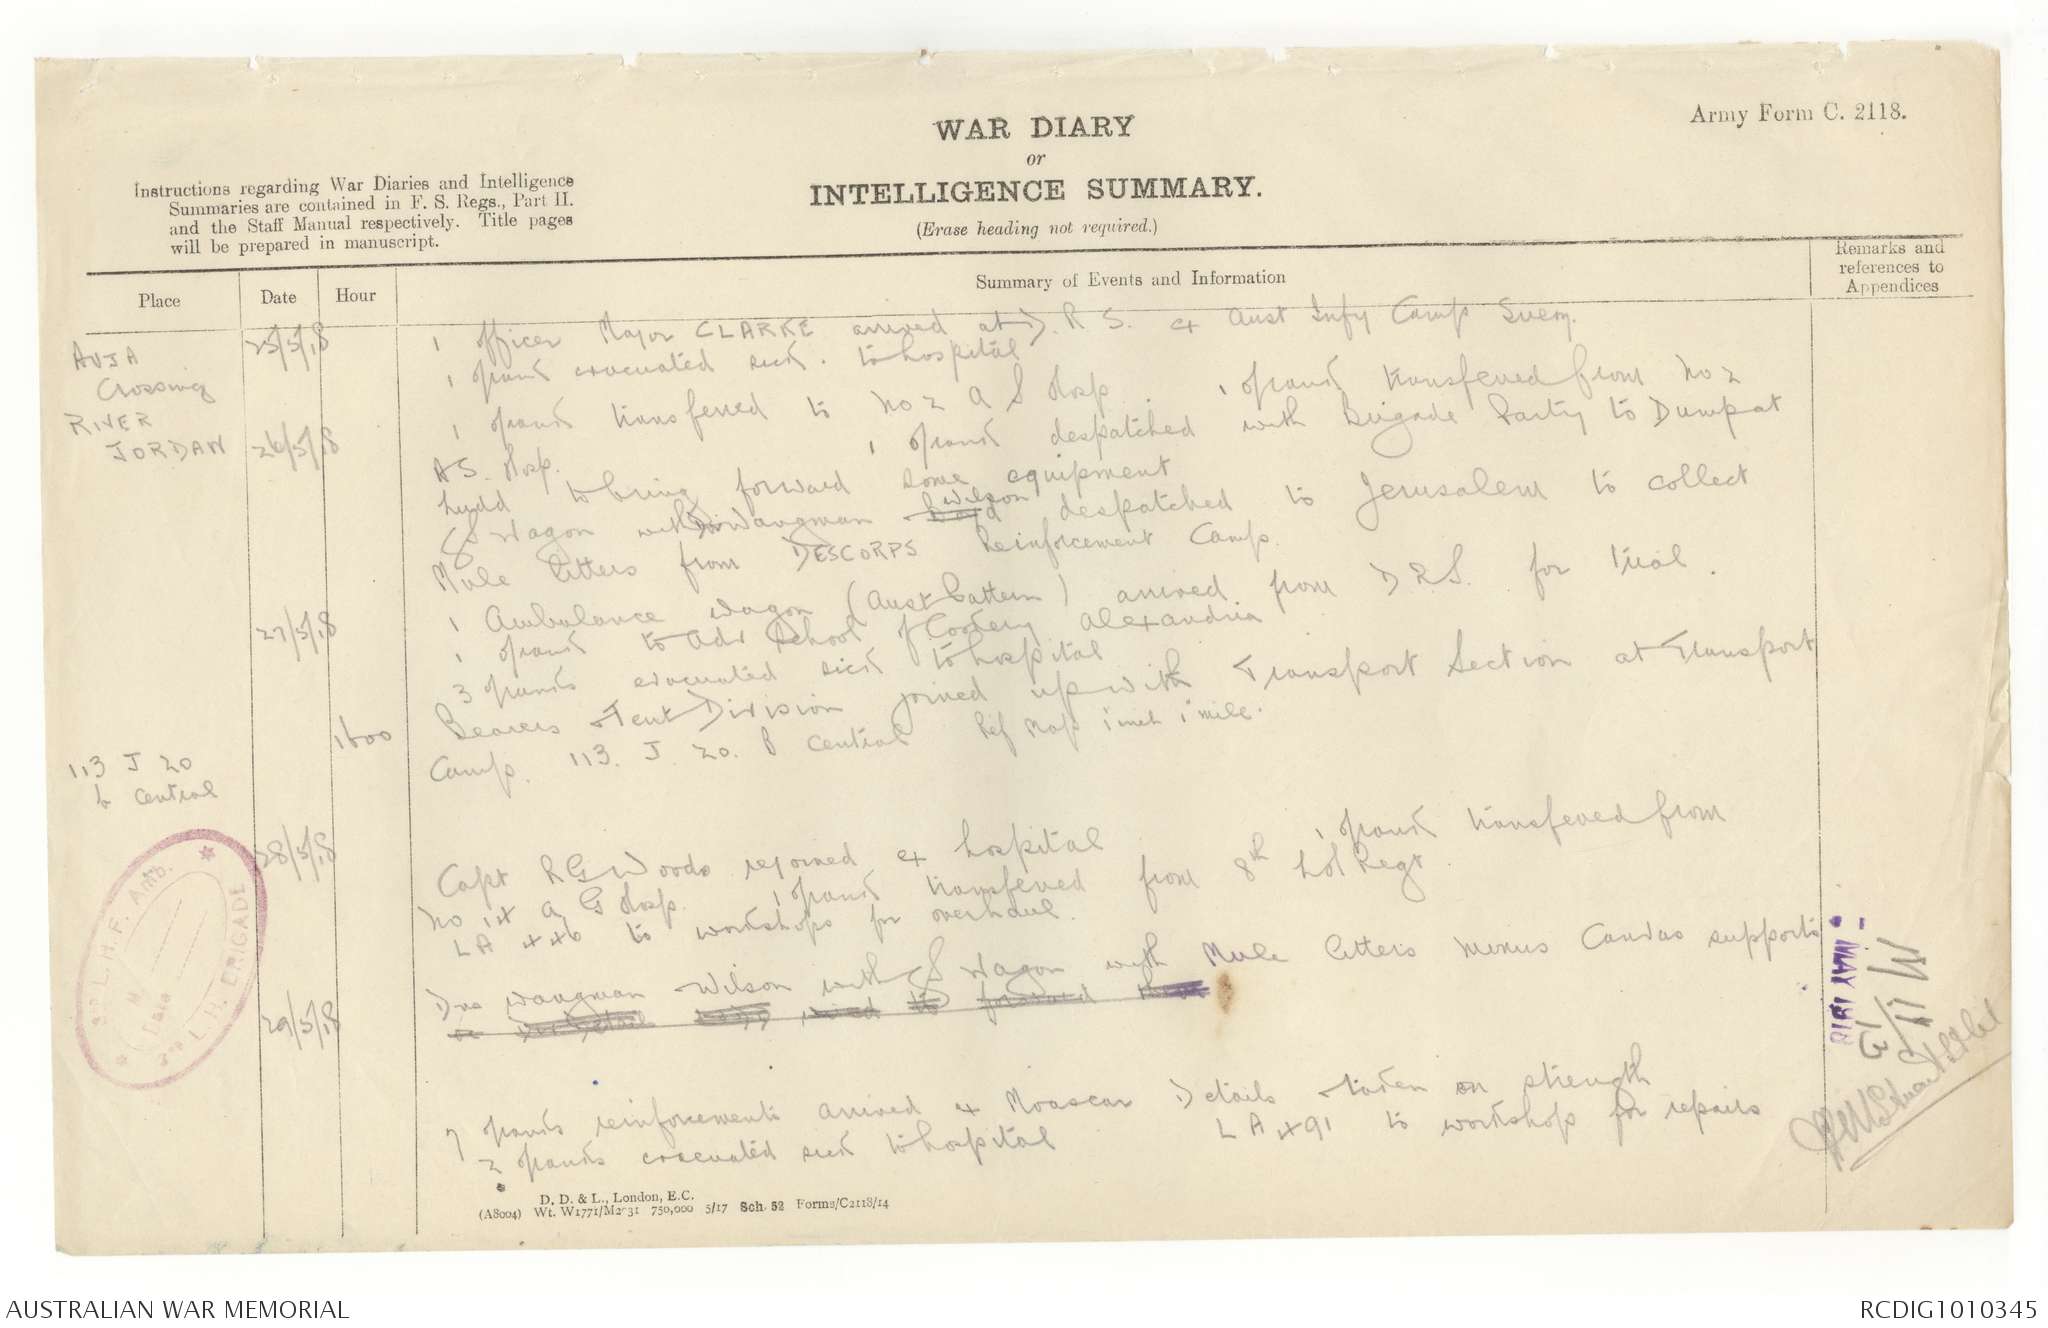 Army Form C. 2118.
WAR DIARY
or
INTELLIGENCE SUMMARY.
(Erase heading not required.)
Instructions regarding War Diaries and Intelligence
Summaries are contained in F. S. Regs., Part II.
and the Staff Manual respectively. Title pages
will be prepared in manuscript.
Place
Date
Hour
Summary of Events and Information
Remarks and
references to
Appendices
AUJA
Crossing
RIVER
JORDAN
25/5/18
1 officer Major CLARKE arrived at D.R.S. ex Aust Infy Camp
1 o/rank evacuated sick. to hospital
1 o/rank transferred to No 2 A S Hosp. 1 o/rank transferred from No 2
A S. Hosp.
26/5/18
1 o/rank despatched with Brigade Party to Dump at
Ludd to bring forward some equipment
GS Wagon with Dvr Wangman Wilson despatched to Jerusalem to collect
Mule litters from DESCORPS Reinforcement Camp.
1 Ambulance Wagon (Aust Pattern) arrived from D.R.S. for trial.
27/5/18
1 o/rank to School of Cookery Alexandria
3 o/ranks evacuated sick to hospital
113 J 20
b central
1600
Bearers & Tent Division joined up with Transport Section at Transport
Camp. 113. J. 20. B central Ref Map 1 inch 1 mile.
28/5/18
Capt R G Woods rejoined ex hospital 1 o/rank transferred from
No 14 A G Hosp. 1 o/rank transferred from 8th LH Regt.
LA 446 to workshops for overhaul.
29/5/18
Dvrs Wangman & Wilson with GS Wagon with Mule litters minus Canvas supports
7 o/ranks reinforcements arrived ex Moascar Details taken on strength
2 o/ranks evacuated sick to hospital LA 491 to workshops for repairs
3RD L.H.F. Amb.
3RD L.H. BRIGADE
- MAY 1918
D. D. & L., London, E.C.
(A8004) Wt. W1771/M2031 750,000 5/17 Sch. 52 Forms/C2118/14
AUSTRALIAN WAR MEMORIAL
RCDIG1010345